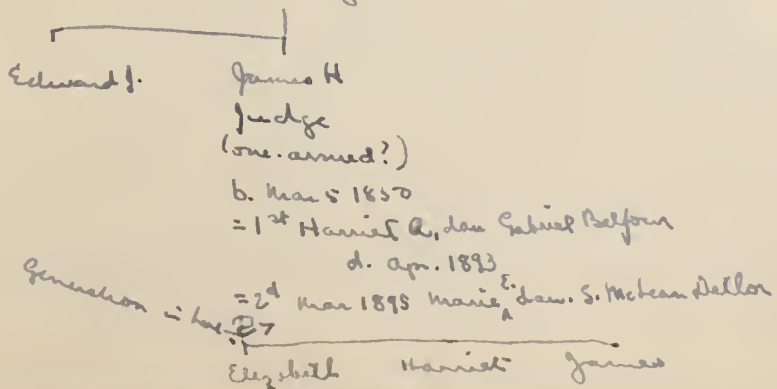 Edward J. James H
Judge
(one-armed?)
b. Mar 5 1850
= 1st Harriet A, dau Gabriel Balfour
d. Apr. 1893
= 2d Mar 1895 Marie E. dau. S. McLean Detlor
Generation in here ?
Elizabeth Harriet James